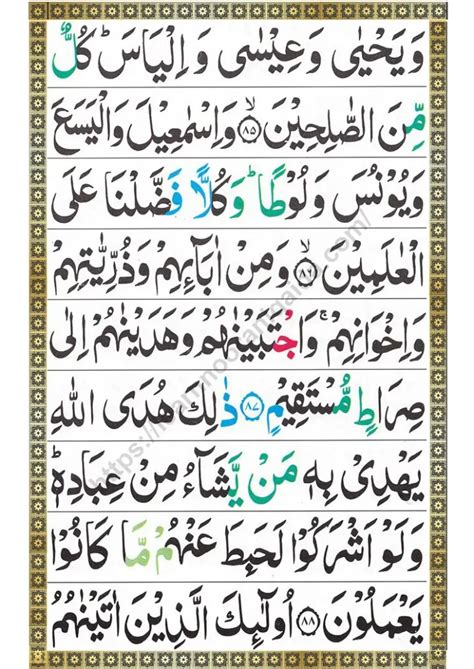 وَ يَحْيٰى وَ عِيْسٰى وَ اِلْيَاسَ ؕ كُلٌّ
مِّنَ الصّٰلِحِيْنَ ۙ‏﴿۸۵﴾ وَ اِسْمٰعِيْلَ وَ الْيَسَعَ
وَ يُوْنُسَ وَ لُوْطًا ؕ وَ كُلًّا فَضَّلْنَا عَلَى
الْعٰلَمِيْنَ ۙ‏﴿۸۶﴾ وَ مِنْ اٰبَآئِهِمْ وَ ذُرِّيّٰتِهِمْ
وَ اِخْوَانِهِمْ ۚ وَ اجْتَبَيْنٰهُمْ وَ هَدَيْنٰهُمْ اِلٰى
صِرَاطٍ مُّسْتَقِيْمٍ ﴿۸۷﴾ ذٰ لِكَ هُدَى اللّٰهِ
يَهْدِىْ بِهٖ مَنْ يَّشَآءُ مِنْ عِبَادِهٖ ؕ
وَ لَوْ اَشْرَكُوْا لَحَبِطَ عَنْهُمْ مَّا كَانُوْا
يَعْمَلُوْنَ ﴿۸۸﴾ اُولٰٓئِكَ الَّذِيْنَ اٰتَيْنٰهُمُ
8